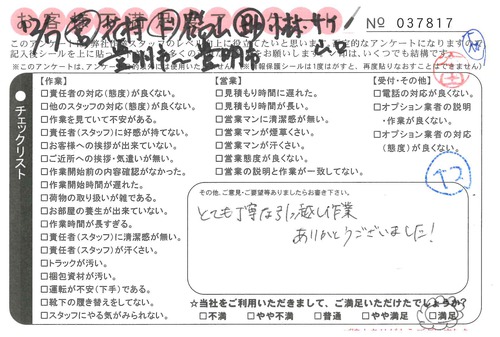 № 037817
このアンケートは弊社
スタッフのレベル向上に役立てたいと思います。
記入後シールを上に貼っ
いくつでも結構です。
※このアンケートは、
(※情報保護シールは1度はがすと、再度貼りなおすことはできません)
チェックリスト
【作業】
□責任者の対応(態度)が良くない。
□他のスタッフの対応(態度)が良くない。
□作業を見ていて不安がある。
□責任者(スタッフ)に好感が持てない。
□お客様への挨拶が出来ていない。
□ご近所への挨拶・気遣いが無い。
□作業開始前の内容確認がなかった。
□作業開始時間が遅れた。
□荷物の取り扱いが雑である。
□お部屋の養生が出来ていない。
□作業時間が長すぎる。
□責任者(スタッフ)に清潔感が無い。
□責任者(スタッフ)が汗くさい。
□トラックが汚い。
□梱包資材が汚い。
□運転が不安(下手)である。
□靴下の履き替えをしてない。
□スタッフにやる気がみられない。
【営業】
□見積もり時間に遅れた。
□見積もり時間が長い。
□営業マンに清潔感が無い。
□営業マンが煙草くさい。
□営業マンが汗くさい。
□営業態度が良くない。
□営業の説明と作業が一致してない。
【受付・その他】
□電話の対応が良くない。
□オプション業者の説明
・作業が良くない。
□オプション業者の対応
(態度)が良くない。
その他、ご意見・ご要望等ありましたらお書き下さい。
とても丁寧な引っ越し作業
ありがとうございました!
☆当社をご利用いただきまして、ご満足いただけたでしょうか?
□不満 □やや不満 □普通 □やや満足 □満足